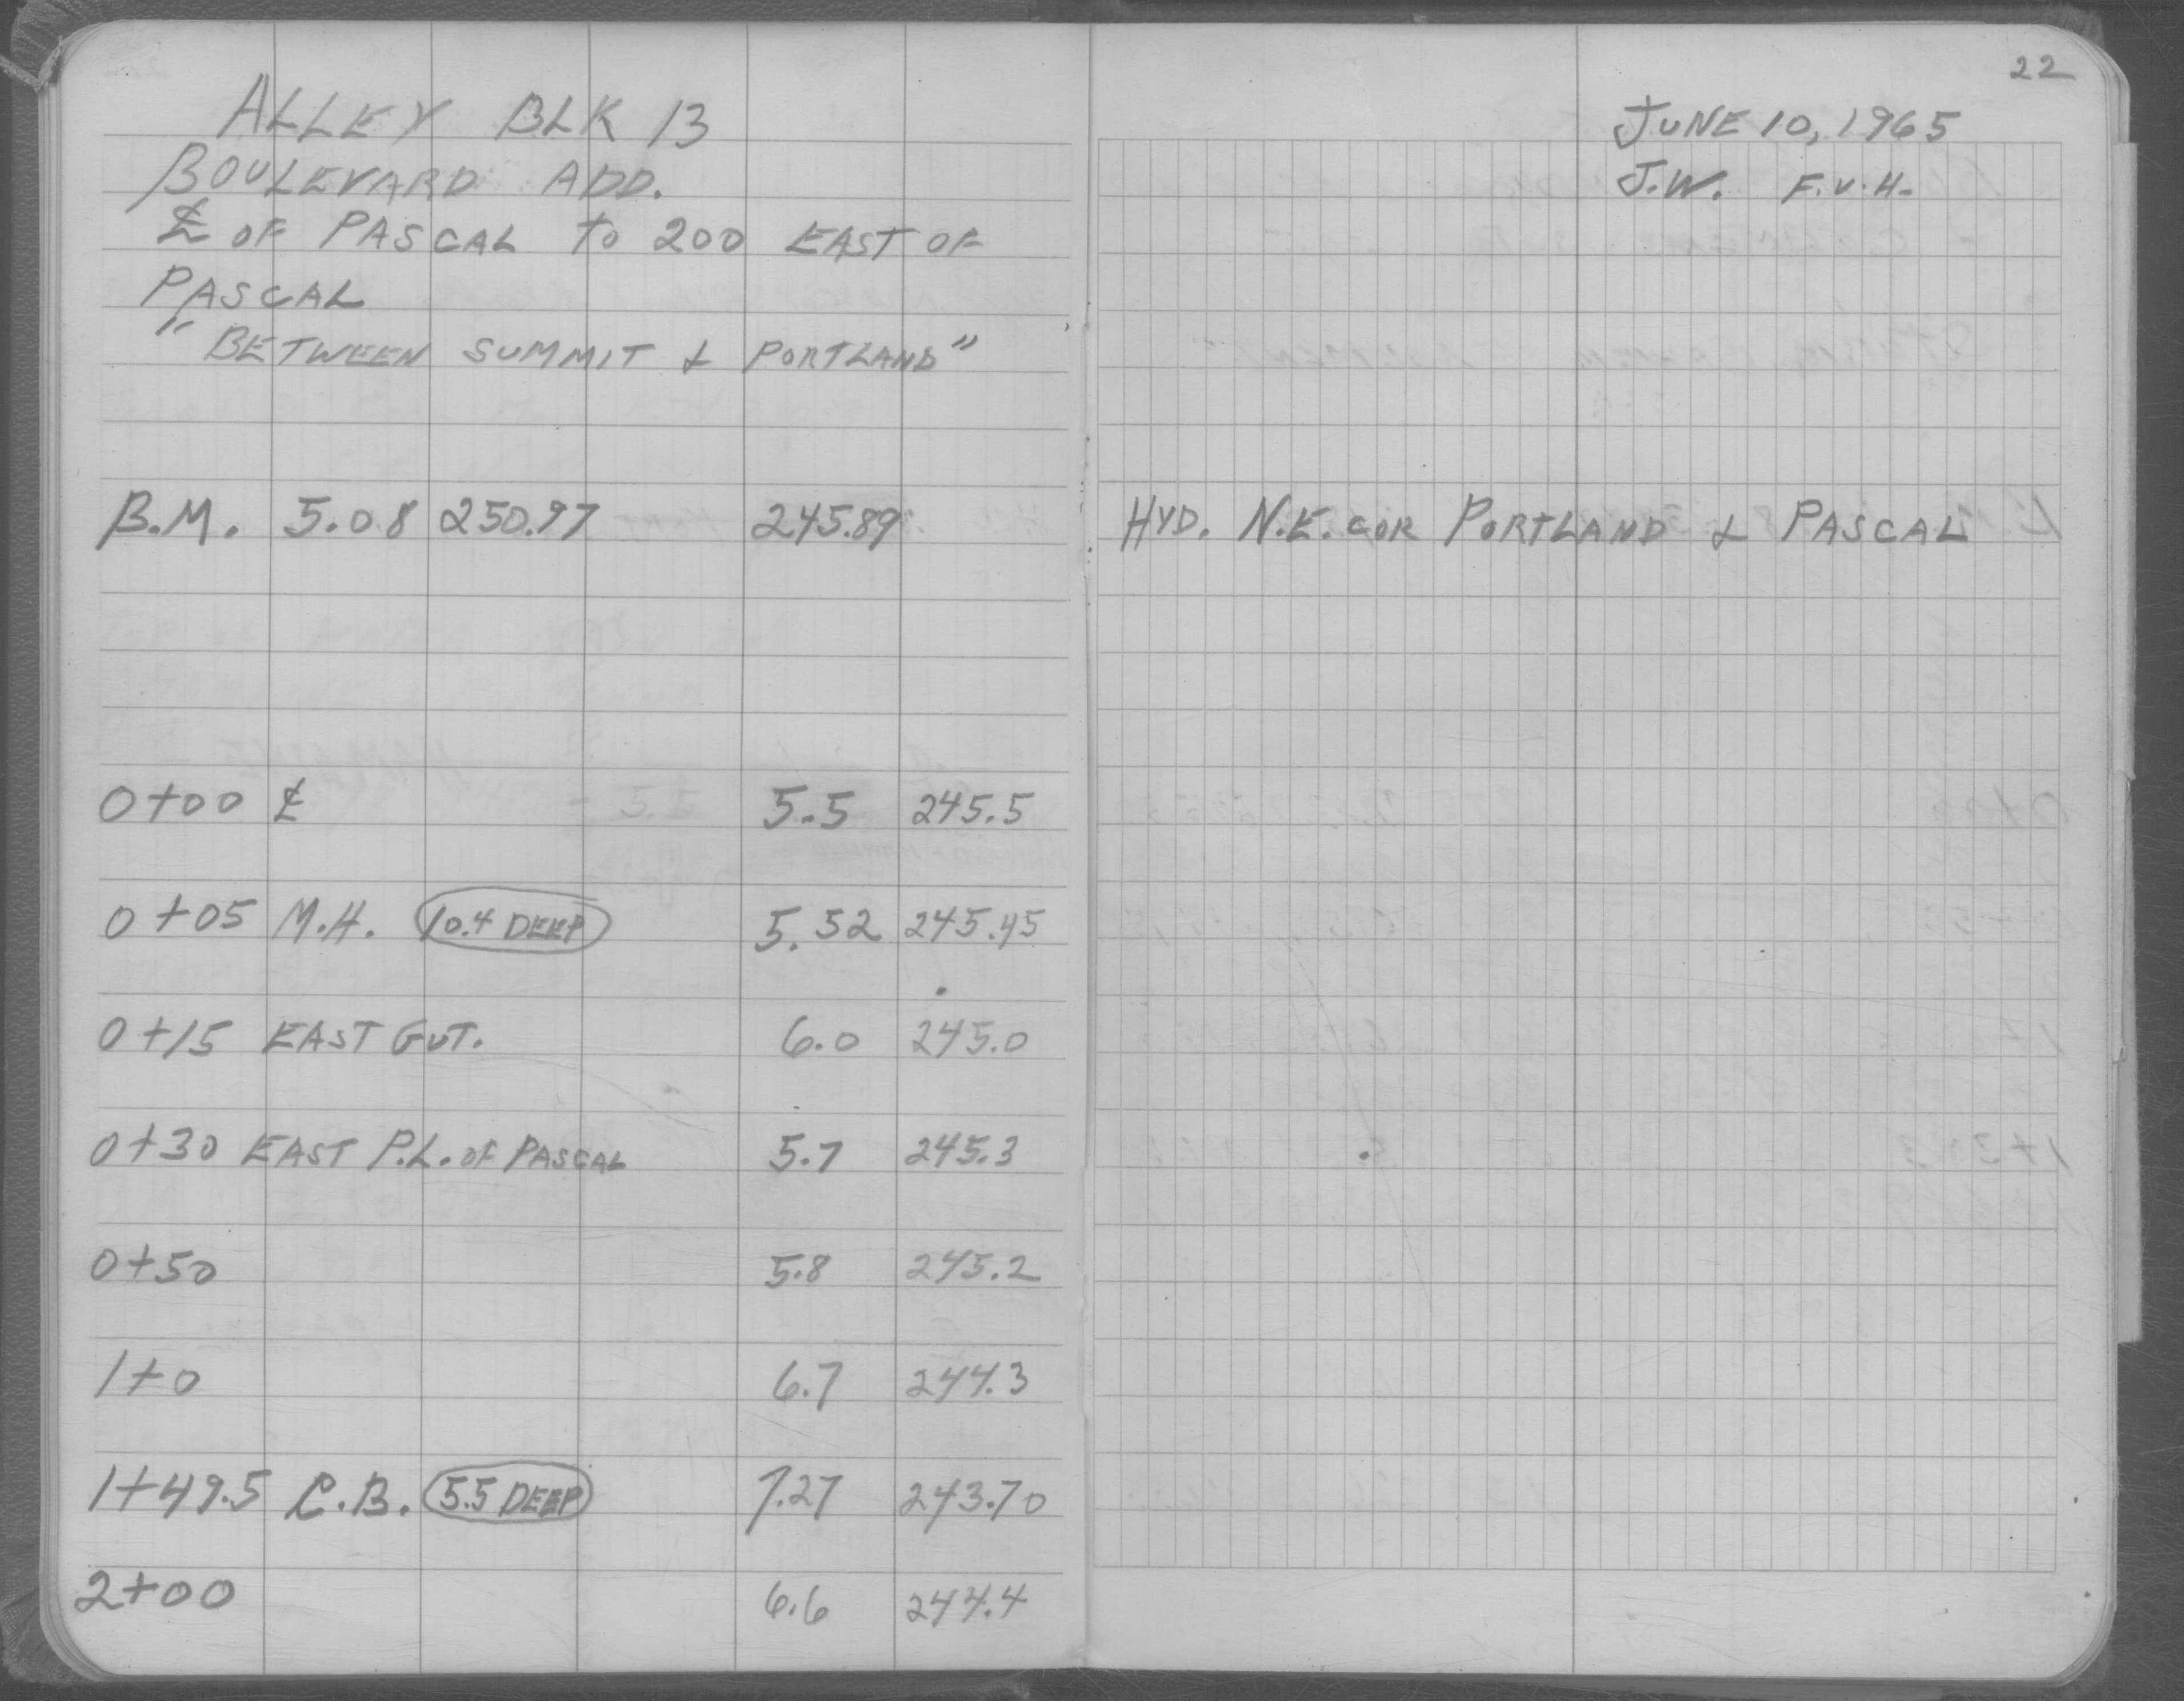 ALLEY BLK 13
BOULEVARD ADD.
℄ OF PASCAL to 200 EAST OF
PASCAL
"BETWEEN SUMMIT & PORTLAND"
B.M. 5.08 250.97 245.89
0+00 ℄ 5.5 245.5
0+05 M.H. 10.4 DEEP 5.52 245.45
0+15 EAST GUT. 6.0 245.0
0+30 EAST P.L. OF PASCAL 5.7 245.3
0+50 5.8 245.2
1+0 6.7 244.3
1+49.5 C.B. 5.5 DEEP 7.27 243.70
2+00 6.6 244.4
22
JUNE 10, 1965
J.W. F.V.H.
HYD. N.E. COR PORTLAND & PASCAL